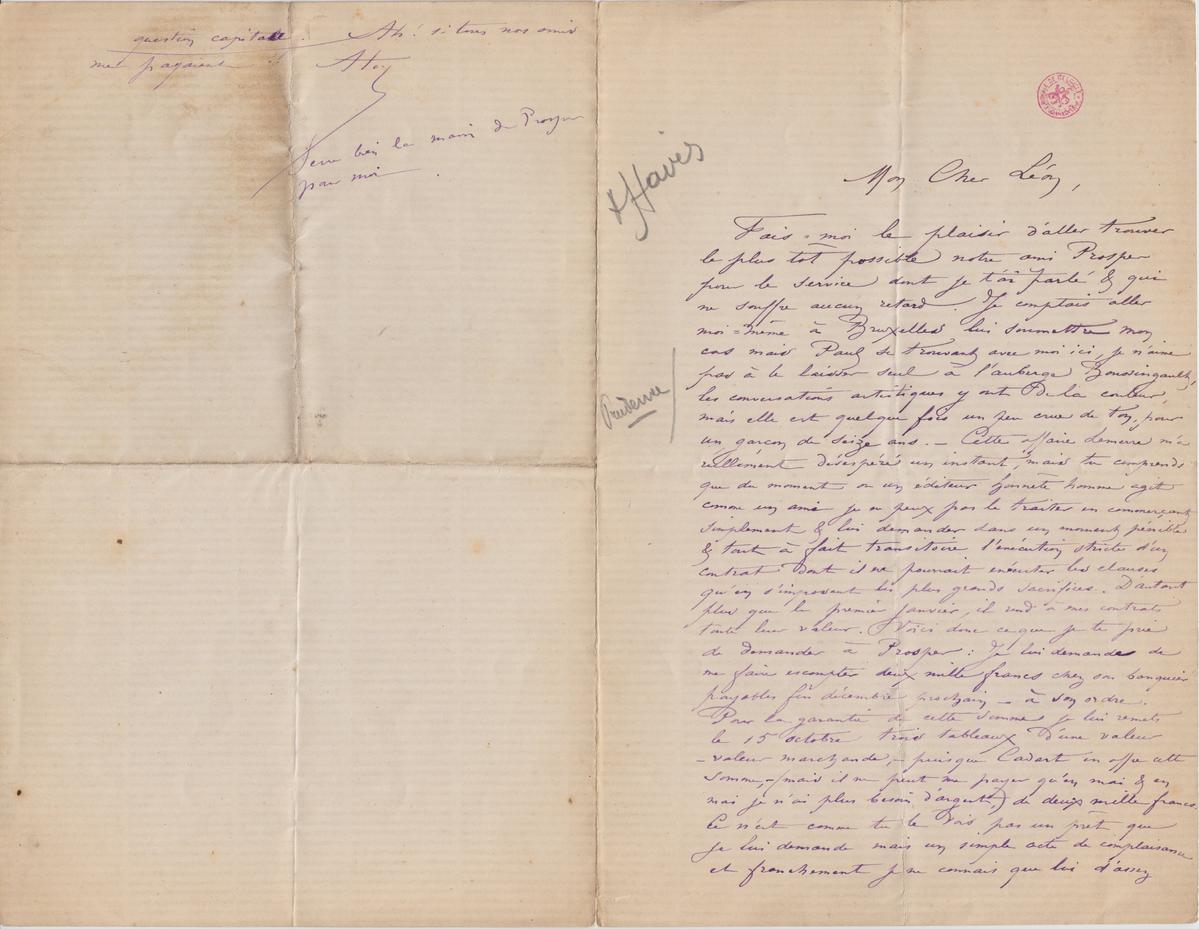 question capitale. Ah! si tous nos amis
me payaient !!
Serre bien la main de Prosper
pour moi.
affaires
Prudence
Mon Cher Léon,
Fais-moi le plaisir d'aller trouver
le plus tôt possible notre ami Prosper
pour le service dont je t'ai parlé & qui
ne souffre aucun retard. Je comptais aller
moi=même à Bruxelles lui soumettre mon
cas mais Paul se trouvant avec moi ici, je n'aime
pas à le laisser seul à l'auberge
les conversations artistiques y ont de la couleur,
mais elle est quelque fois un peu crue de ton, pour
un garçon de seize ans. — Cette affaire m'a
réellement désespéré un instant, mais tu comprends
que du moment où un éditeur honnête homme agit
comme un ami je ne peux pas le traiter en commerçant
simplement & lui demander dans un moment pénible
& tout à fait transitoire, l'exécution stricte d'un
contrat dont il ne pourrait exécuter les clauses
qu'en s'imposant les plus grands sacrifices. D'autant
plus que le premier Janvier, il rend à mes contrats
toute leur valeur. Voici donc ce que je te prie
de demander à Prosper : Je lui demande de
me faire escompter deux mille francs chez son banquier
payables fin décembre prochain — à son ordre.
Pour la garantie de cette somme je lui remets
le 15 octobre trois tableaux d'une valeur
— valeur marchande, — puisque Cadart en offre cette
somme, — mais il ne peut me payer qu'en mai & en
mai je n'ai plus besoin d'argent,) de deux mille francs.
Ce n'est comme tu le vois pas un prêt que
je lui demande mais un simple acte de complaisance
et franchement je ne connais que lui d'assez